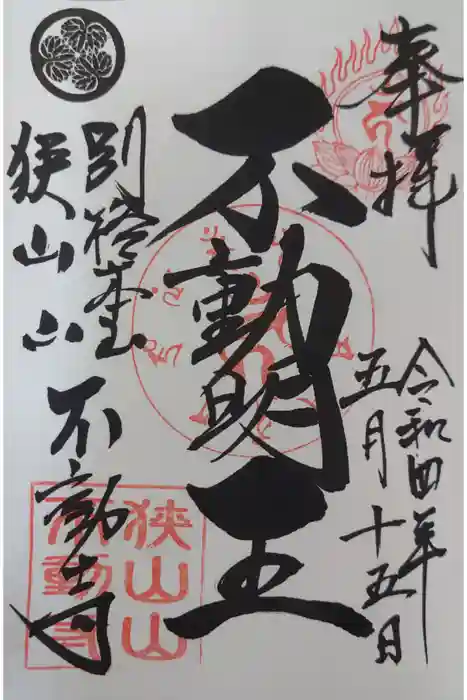 奉拝
令和四年
五月十五日
不動明王
別格本山
狭山山
不動寺
狭山山
不動寺